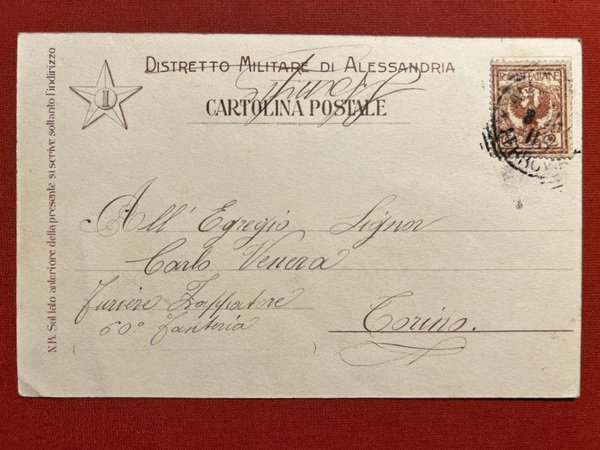 DISTRETTO MILITARE DI ALESSANDRIA
CARTOLINA POSTALE
I
N.B. Sul lato anteriore della presente si scrive soltanto l'indirizzo
POSTE ITALIANE
2
All' Egregio Signor
Carlo Venera
Furiere Zappatore
60° Fanteria
Torino.